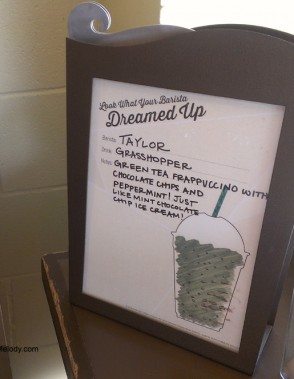 Look What Your Barista
Dreamed Up
Barista: TAYLOR
Drink: GRASSHOPPER
Notes: GREEN TEA FRAPPUCCINO WITH
CHOCOLATE CHIPS AND
PEPPERMINT! JUST
LIKE MINT CHOCOLATE
CHIP ICE CREAM!
Melody.com